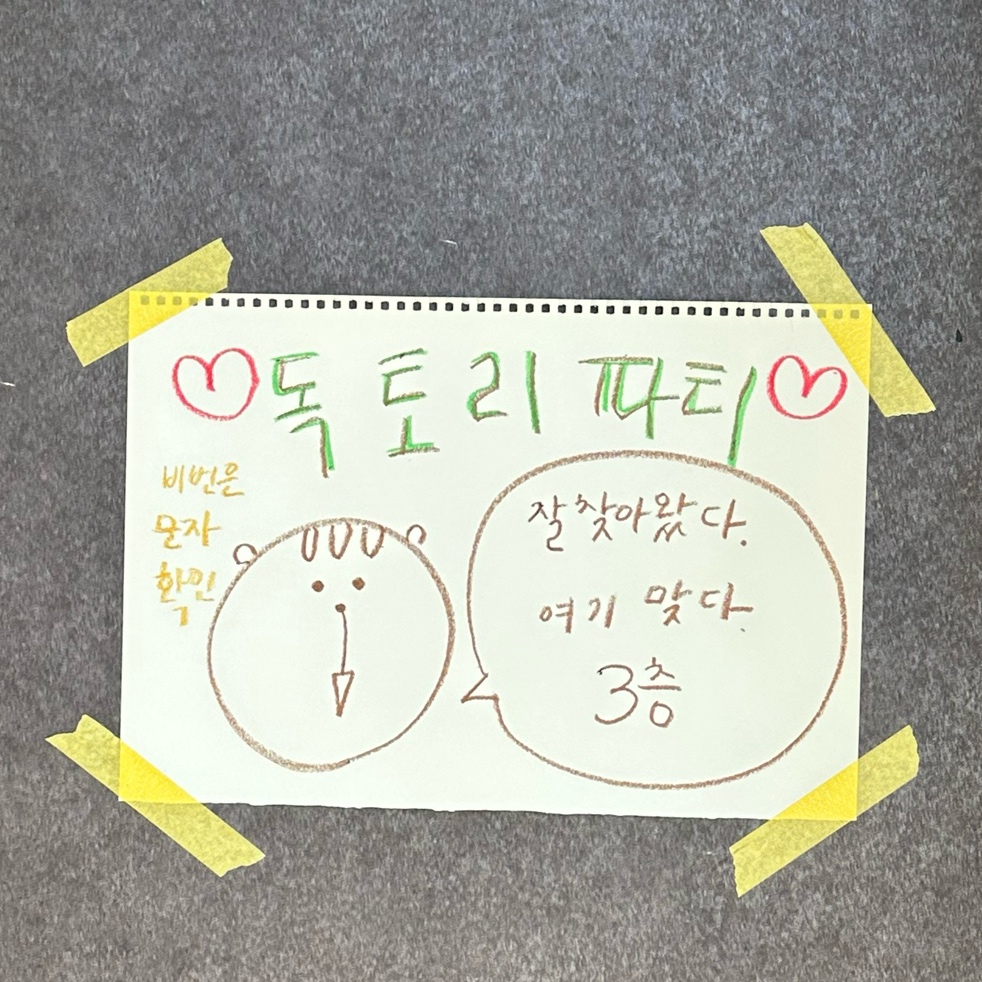 ♡독토리 파티♡
비번은
문자
확인
잘 찾아왔다.
여기 맞다.
3층